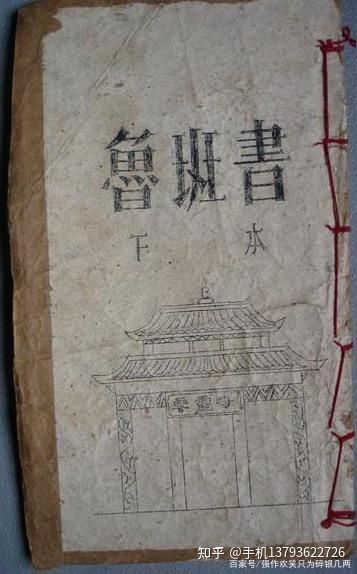 魯班書
下本
知乎 @手机13793622726
百家号/强作欢笑只为碎银几两